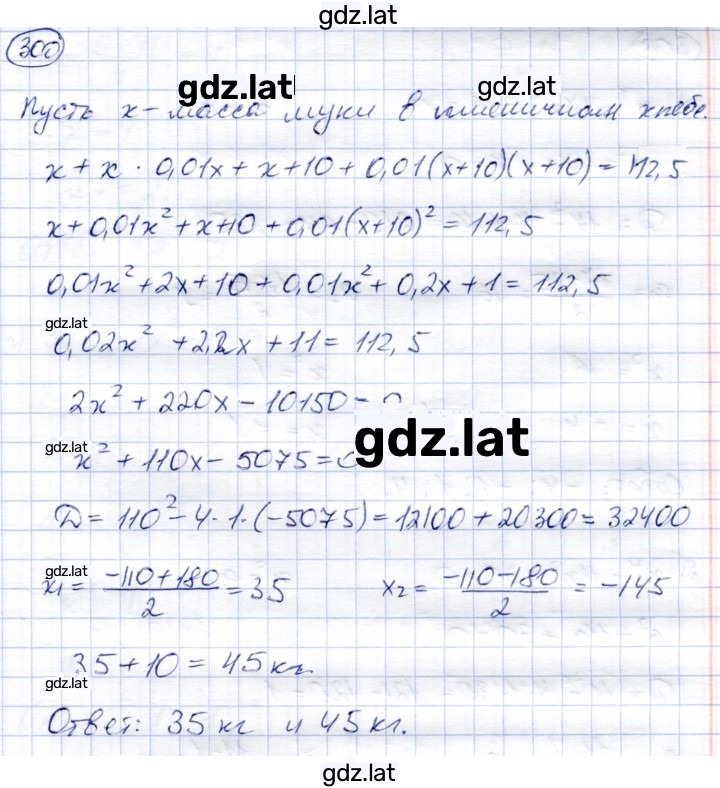 gdz.lat
300
gdz.lat
gdz.lat
Пусть x - масса муки в пшеничном хлебе.
x + x · 0,01x + x + 10 + 0,01(x+10)(x+10) = 112,5
x + 0,01x² + x + 10 + 0,01(x+10)² = 112,5
0,01x² + 2x + 10 + 0,01x² + 0,2x + 1 = 112,5
gdz.lat
0,02x² + 2,2x + 11 = 112,5
2x² + 220x - 10150 = 0
gdz.lat
gdz.lat
x² + 110x - 5075 = 0
D = 110² - 4·1·(-5075) = 12100 + 20300 = 32400
gdz.lat
gdz.lat
x₁ = (-110+180)/2 = 35 x₂ = (-110-180)/2 = -145
35 + 10 = 45 кг.
gdz.lat
Ответ: 35 кг и 45 кг.
gdz.lat